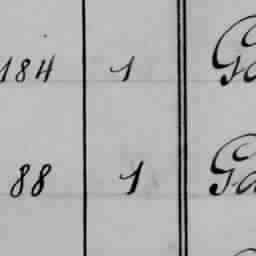 184 1 Ga
88 1 Ga